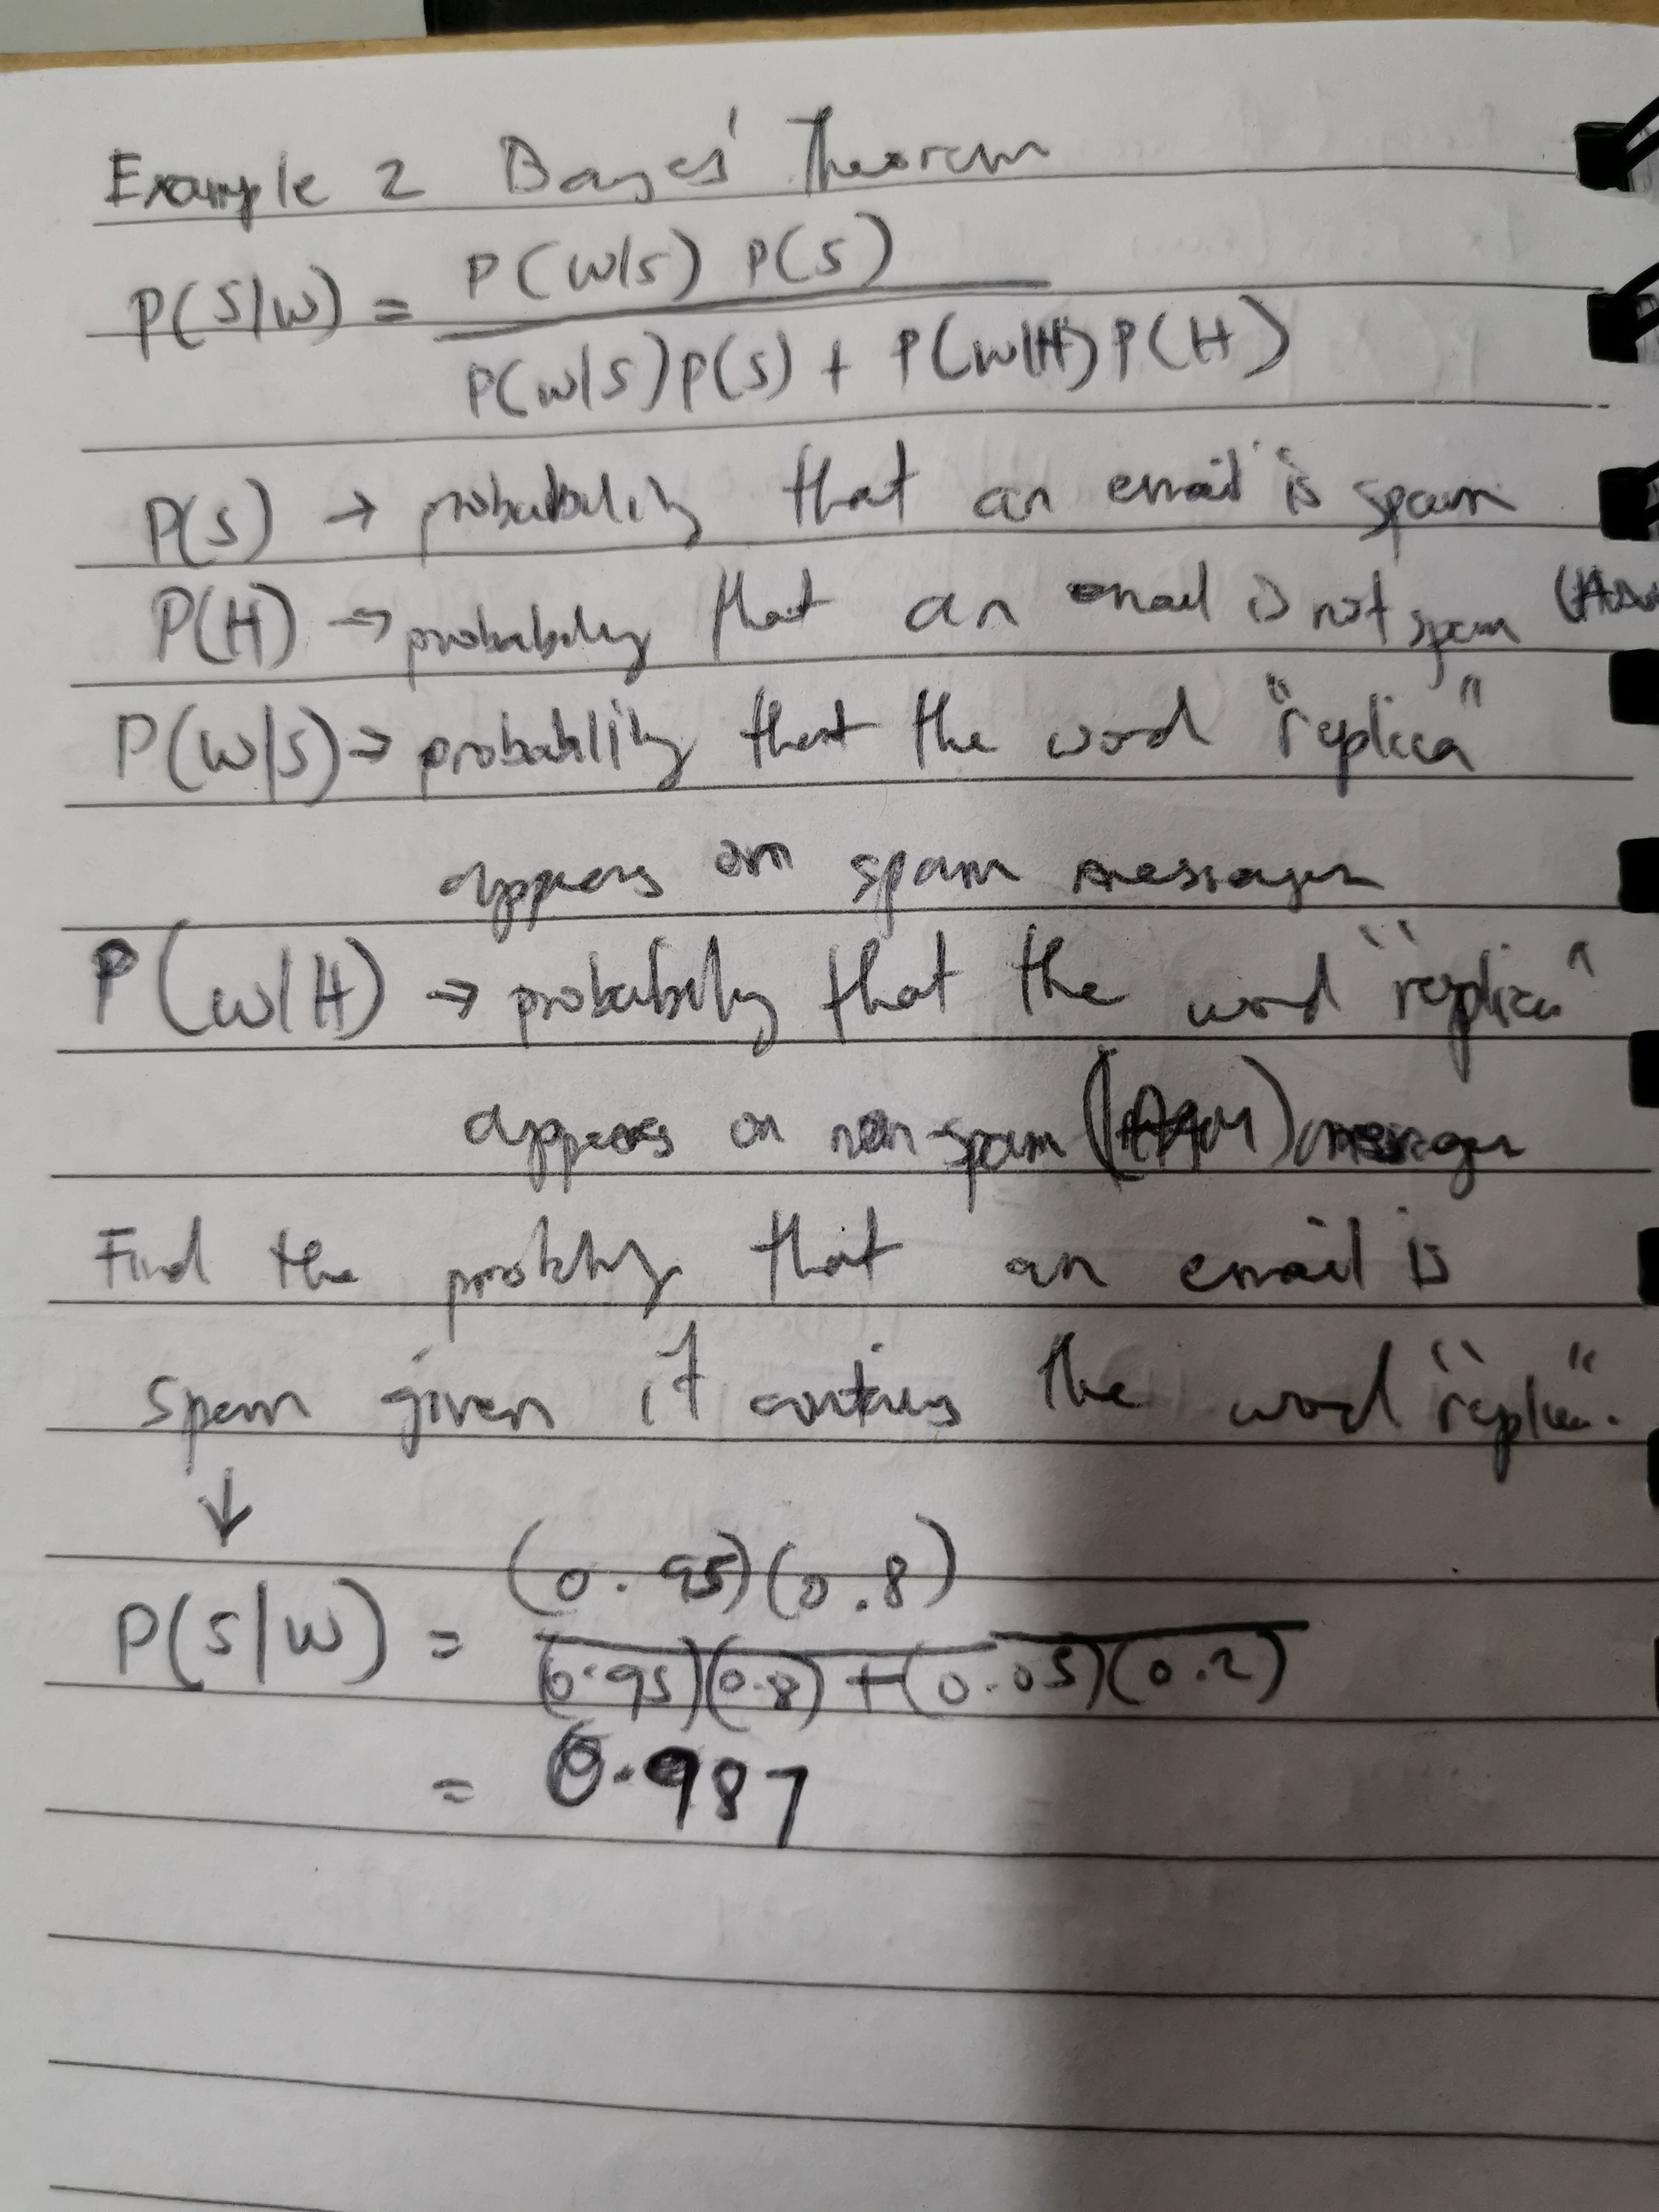 Example 2 Bayes' Theorem
P(S|W) = P(W|S) P(S)
P(W|S)P(S) + P(W|H)P(H)
P(S) → probability that an email is spam
P(H) → probability that an email is not spam
P(W|S) → probability that the word "replica"
appears on spam messages
P(W|H) → probability that the word "replica"
appears on non-spam (HAM) messages
Find the probability that an email is
spam given it contains the word "replica".
↓
P(S|W) = (0.95)(0.8)
(0.95)(0.8) + (0.05)(0.2)
= 0.987